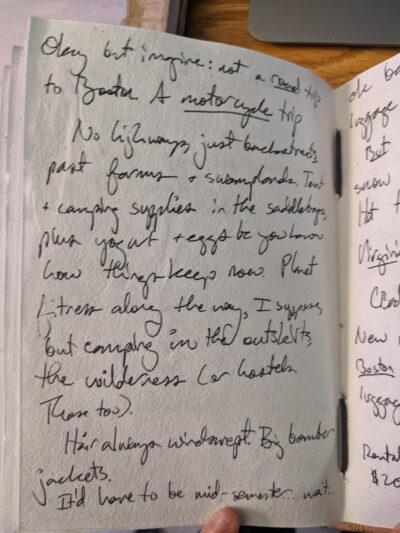 Okay but imagine: not a road trip
to Boston A motorcycle trip
No highways, just backstreets,
past farms + swamplands. Tent
+ camping supplies in the saddlebags,
plus yogurt + eggs bc you know
how things keep now. Planet
Fitness along the way, I suppose,
but camping in the outskirts,
the wilderness (or hostels
Those too).
Hair always windswept. Big bomber
jackets.
It'd have to be mid-semester... wait...
ok ba
luggage
But
snow
Hot
Virginia
(Bad
New
Boston
luggage
Rental
$20